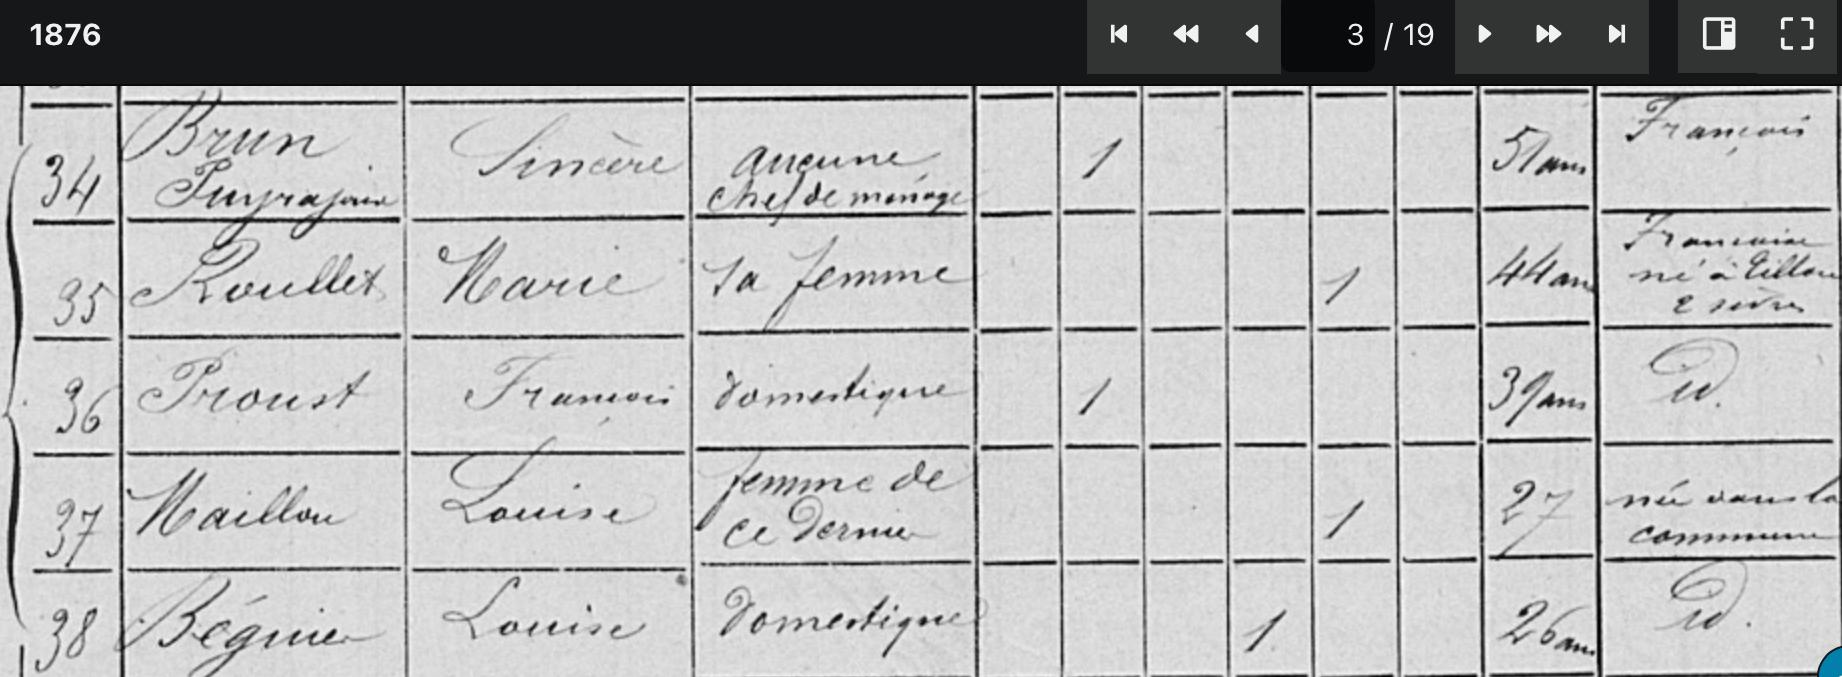 1876
3 / 19
34 Brun Puyrajoux Sincère aucune chef de ménage 1 51 ans Français
35 Roullet Marie sa femme 1 44 ans Française né à Tillou 2 sèvres
36 Proust François domestique 1 39 ans id.
37 Maillou Louise femme de ce dernier 1 27 née dans la commune
38 Béguier Louise domestique 1 26 ans id.